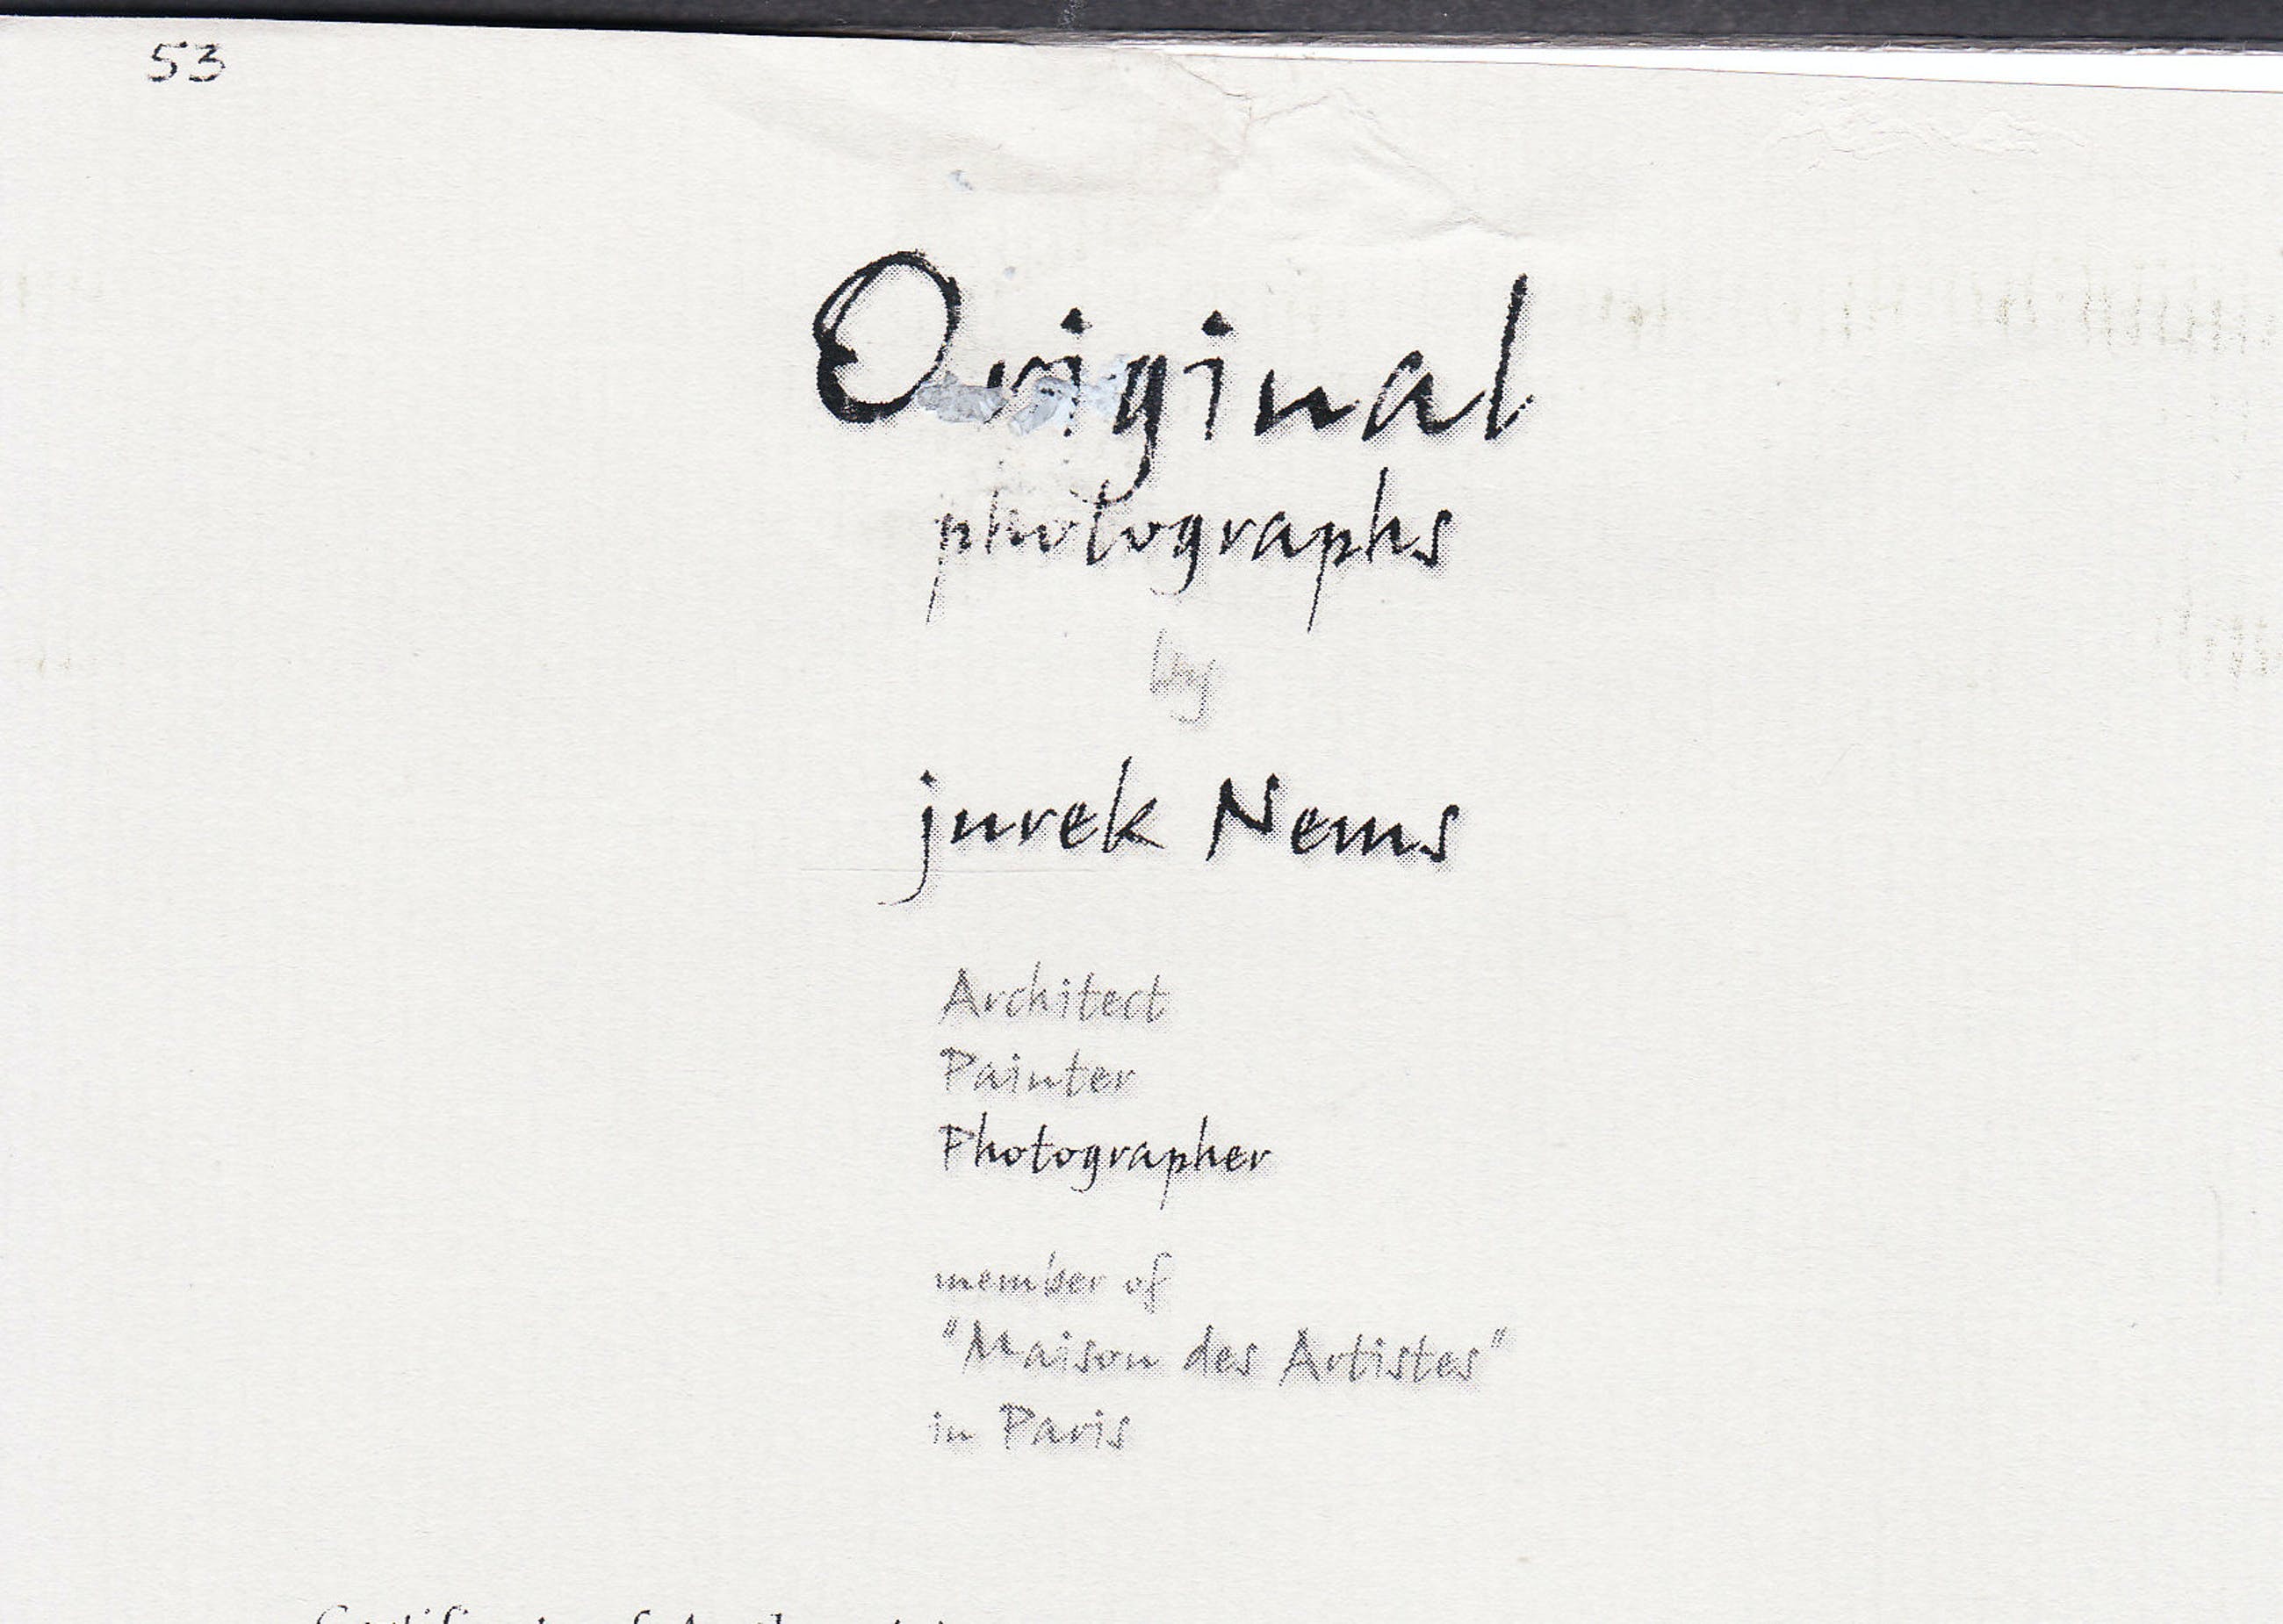 53
Original
photographs
by
jurek Nems
Architect
Painter
Photographer
member of
"Maison des Artistes"
in Paris